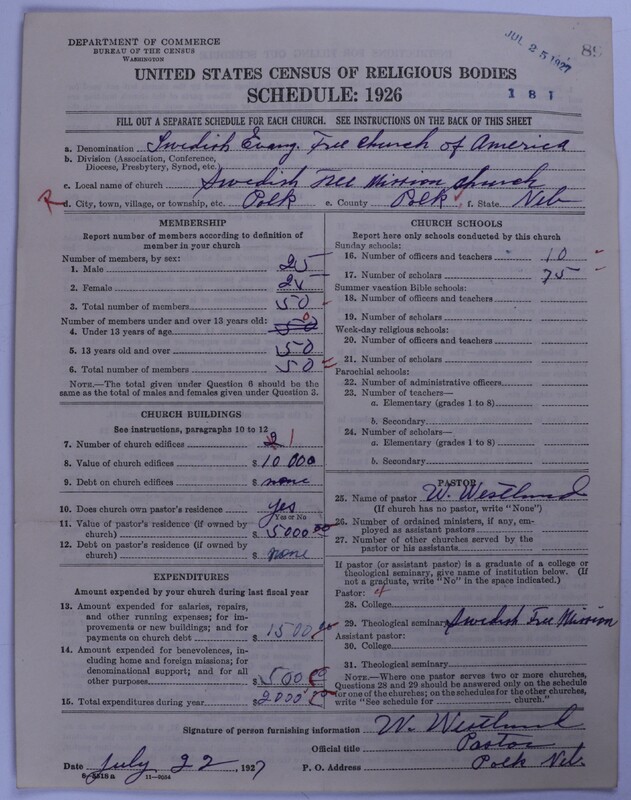 DEPARTMENT OF COMMERCE
BUREAU OF THE CENSUS
WASHINGTON
JUL 25 1927
89
UNITED STATES CENSUS OF RELIGIOUS BODIES
SCHEDULE: 1926
181
FILL OUT A SEPARATE SCHEDULE FOR EACH CHURCH. SEE INSTRUCTIONS ON THE BACK OF THIS SHEET
a. Denomination Swedish Evang. Free Church of America
b. Division (Association, Conference, Diocese, Presbytery, Synod, etc.)
c. Local name of church Swedish Free Mission Church
d. City, town, village, or township, etc. Polk e. County Polk f. State Neb
MEMBERSHIP
Report number of members according to definition of member in your church
Number of members, by sex:
1. Male 25
2. Female 25
3. Total number of members 50
Number of members under and over 13 years old:
4. Under 13 years of age 50 0
5. 13 years old and over 50
6. Total number of members 50
NOTE.—The total given under Question 6 should be the same as the total of males and females given under Question 3.
CHURCH BUILDINGS
See instructions, paragraphs 10 to 12
7. Number of church edifices 2 1
8. Value of church edifices $ 10 000
9. Debt on church edifices $ none
10. Does church own pastor's residence? yes
Yes or No
11. Value of pastor's residence (if owned by church) $ 5000 00
12. Debt on pastor's residence (if owned by church) $ none
EXPENDITURES
Amount expended by your church during last fiscal year
13. Amount expended for salaries, repairs, and other running expenses; for improvements or new buildings; and for payments on church debt $ 1500 00
14. Amount expended for benevolences, including home and foreign missions; for denominational support; and for all other purposes $ 500 00
15. Total expenditures during year $ 2000 00
CHURCH SCHOOLS
Report here only schools conducted by this church
Sunday schools:
16. Number of officers and teachers 10
17. Number of scholars 75
Summer vacation Bible schools:
18. Number of officers and teachers
19. Number of scholars
Week-day religious schools:
20. Number of officers and teachers
21. Number of scholars
Parochial schools:
22. Number of administrative officers
23. Number of teachers—
a. Elementary (grades 1 to 8)
b. Secondary
24. Number of scholars—
a. Elementary (grades 1 to 8)
b. Secondary
PASTOR
25. Name of pastor W. Westlund
(If church has no pastor, write "None")
26. Number of ordained ministers, if any, employed as assistant pastors
27. Number of other churches served by the pastor or his assistants
If pastor (or assistant pastor) is a graduate of a college or theological seminary, give name of institution below. (If not a graduate, write "No" in the space indicated.)
Pastor:
28. College
29. Theological seminary Swedish Free Mission
Assistant pastor:
30. College
31. Theological seminary
NOTE.—Where one pastor serves two or more churches, Questions 28 and 29 should be answered only on the schedule for one of the churches; on the schedules for the other churches, write "See schedule for church."
Signature of person furnishing information W. Westlund
Official title Pastor
Date July 22, 1927 P. O. Address Polk Neb.
11—9054